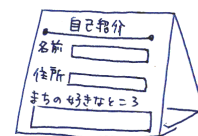 自己紹介
名前
住所
まちの好きなところ